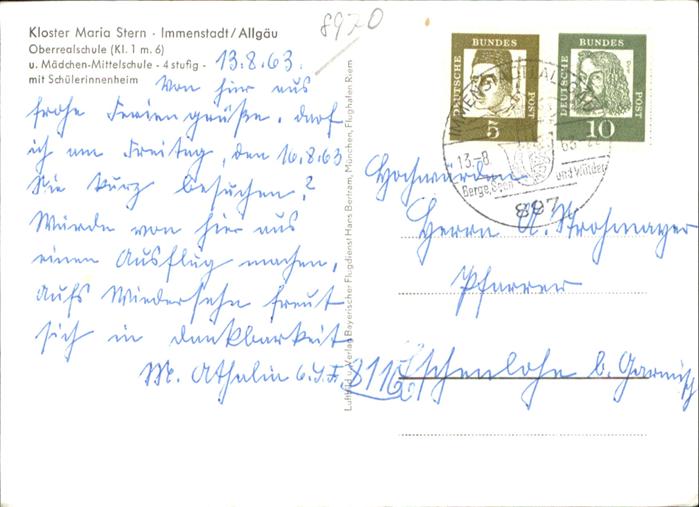 8970
Kloster Maria Stern · Immenstadt/Allgäu
Oberrealschule (Kl. 1 m. 6)
u. Mädchen-Mittelschule - 4 stufig -
mit Schülerinnenheim
13.8.63.
Von hier aus
frohe Feriengrüße. Darf
ich am Freitag, den 16.8.63
Sie kurz besuchen?
Würde von hier aus
einen Ausflug machen.
Aufs Wiedersehn freut
sich in Dankbarkeit
M. Athalin
Luftbild u. Verlag Bayerischer Flugdienst Hans Bertram, München, Flughafen Riem
DEUTSCHE BUNDES POST
5
DEUTSCHE BUNDES POST
10
IMMENSTADT (ALLGÄU)
13.-8. 63
Berge, Seen und Wälder
887
Hochwürden
Herrn A. Strohmayer
Pfarrer
8116
Eschenlohe b. Garmisch